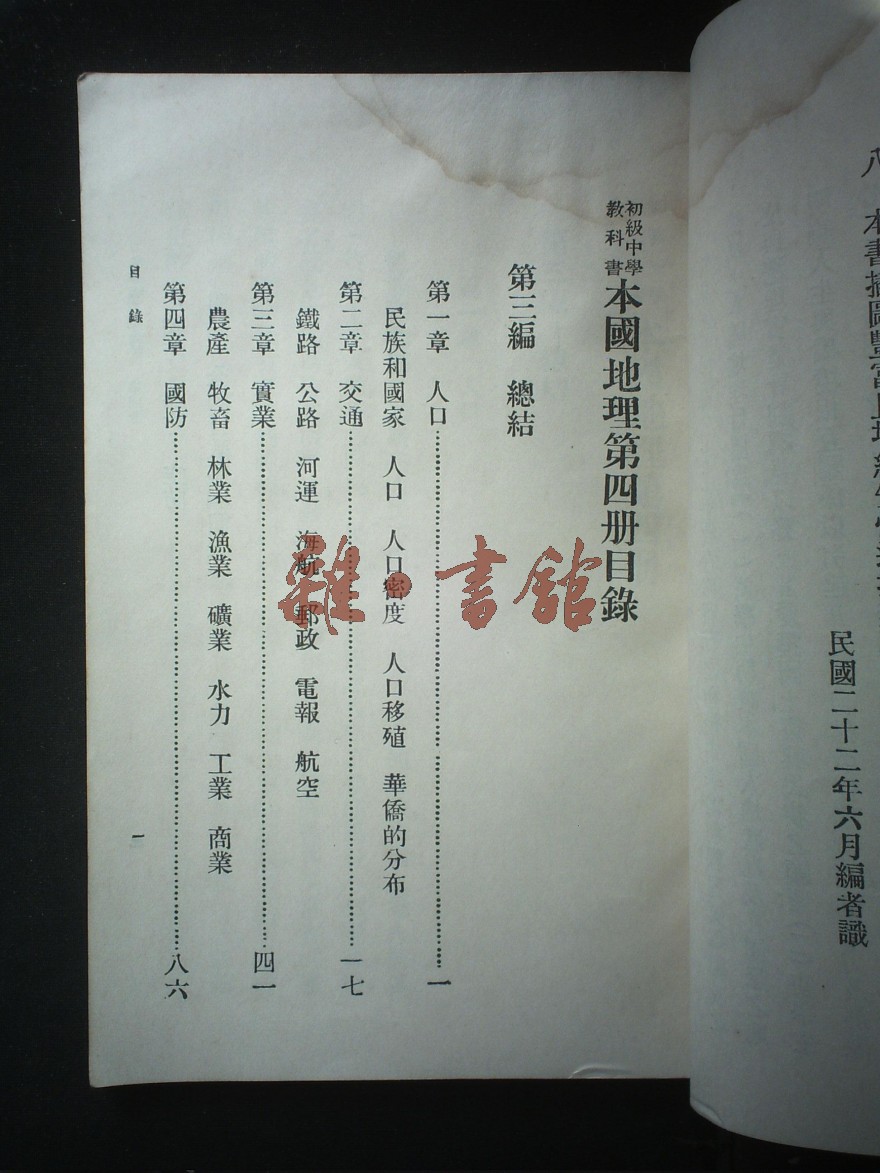 八　本書插圖豐富
民國二十二年六月編者識
初級中學
教科書
本國地理第四册目錄
第三編　總結
第一章　人口……一
民族和國家　人口　人口密度　人口移殖　華僑的分布
第二章　交通……一七
鐵路　公路　河運　海航　郵政　電報　航空
第三章　實業……四一
農產　牧畜　林業　漁業　礦業　水力　工業　商業
第四章　國防……八六
目錄
一
雜·書館